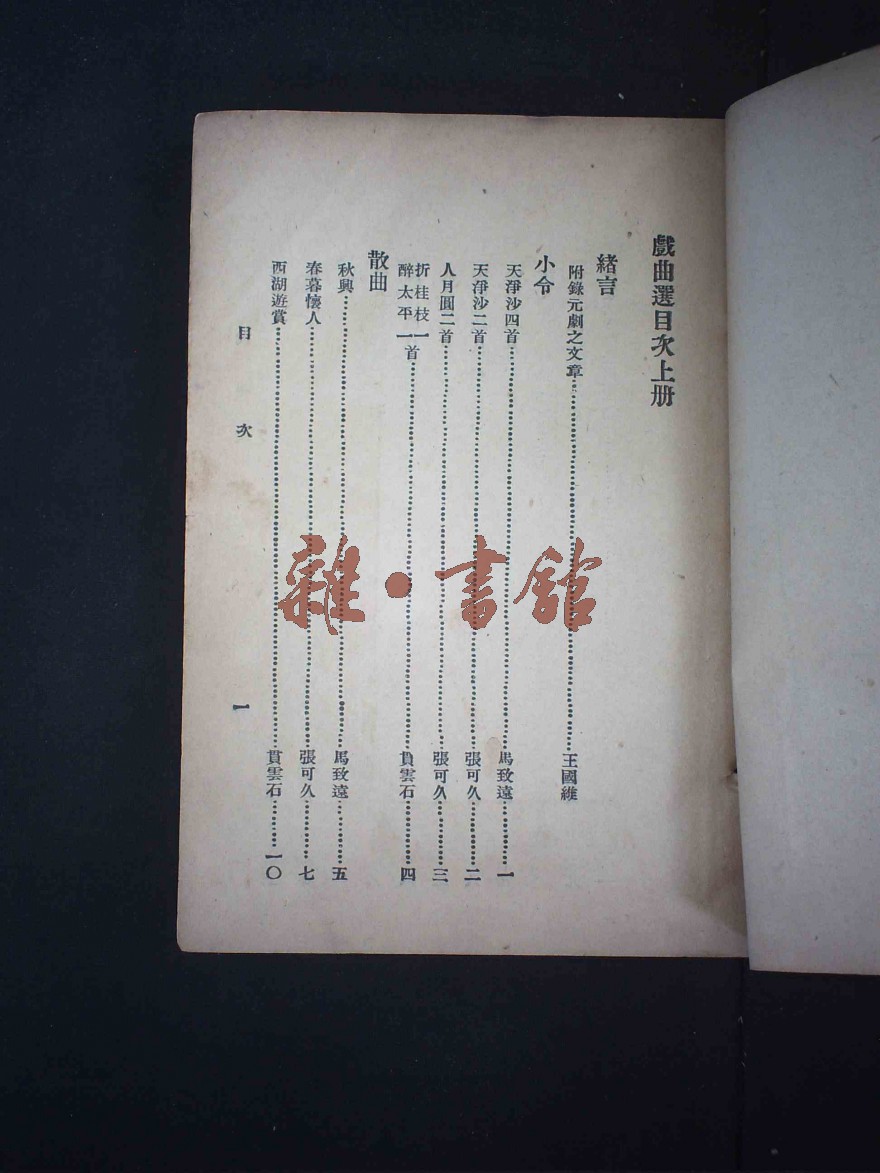 戲曲選目次上册
緒言
附錄元劇之文章……王國維
小令
天淨沙四首……馬致遠……一
天淨沙二首……張可久……二
人月圓二首……張可久……三
折桂枝一
醉太平一首……貫雲石……四
散曲
秋興……馬致遠……五
春暮懷人……張可久……七
西湖遊賞……貫雲石……一〇
目次 一
雜·書館